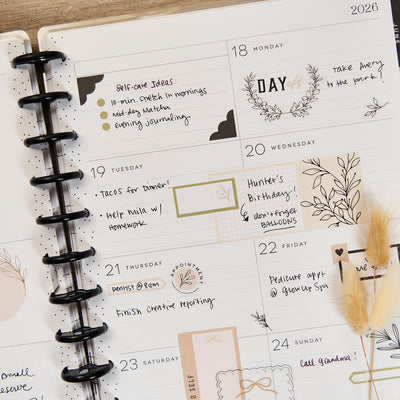 2026
Self-care Ideas
10-min. stretch in mornings
Mid-day Matcha
evening journaling
18 MONDAY
DAY
Take Avery
to the park!
19 TUESDAY
Tacos for Dinner!
Help Mila w/
Homework
20 WEDNESDAY
Hunter's
Birthday!
don't forget
BALLOONS
21 THURSDAY
Dentist @ 9am
APPOINTMENT
Finish creative reporting
22 FRIDAY
Pedicure appt
@ Glow Up Spa
23 SATURDAY
24 SUNDAY
Call Grandma!
small
reserve
D SELF